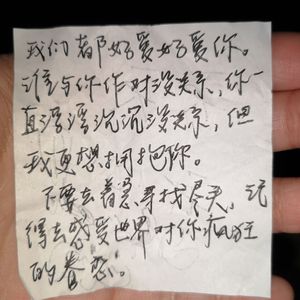 我们都好爱好爱你。
谁与你作对没关系,你一
直浮浮沉沉没关系,但
我更想拥抱你。
不要去着急寻找尽头,记
得去感受世界对你疯狂
的眷恋。